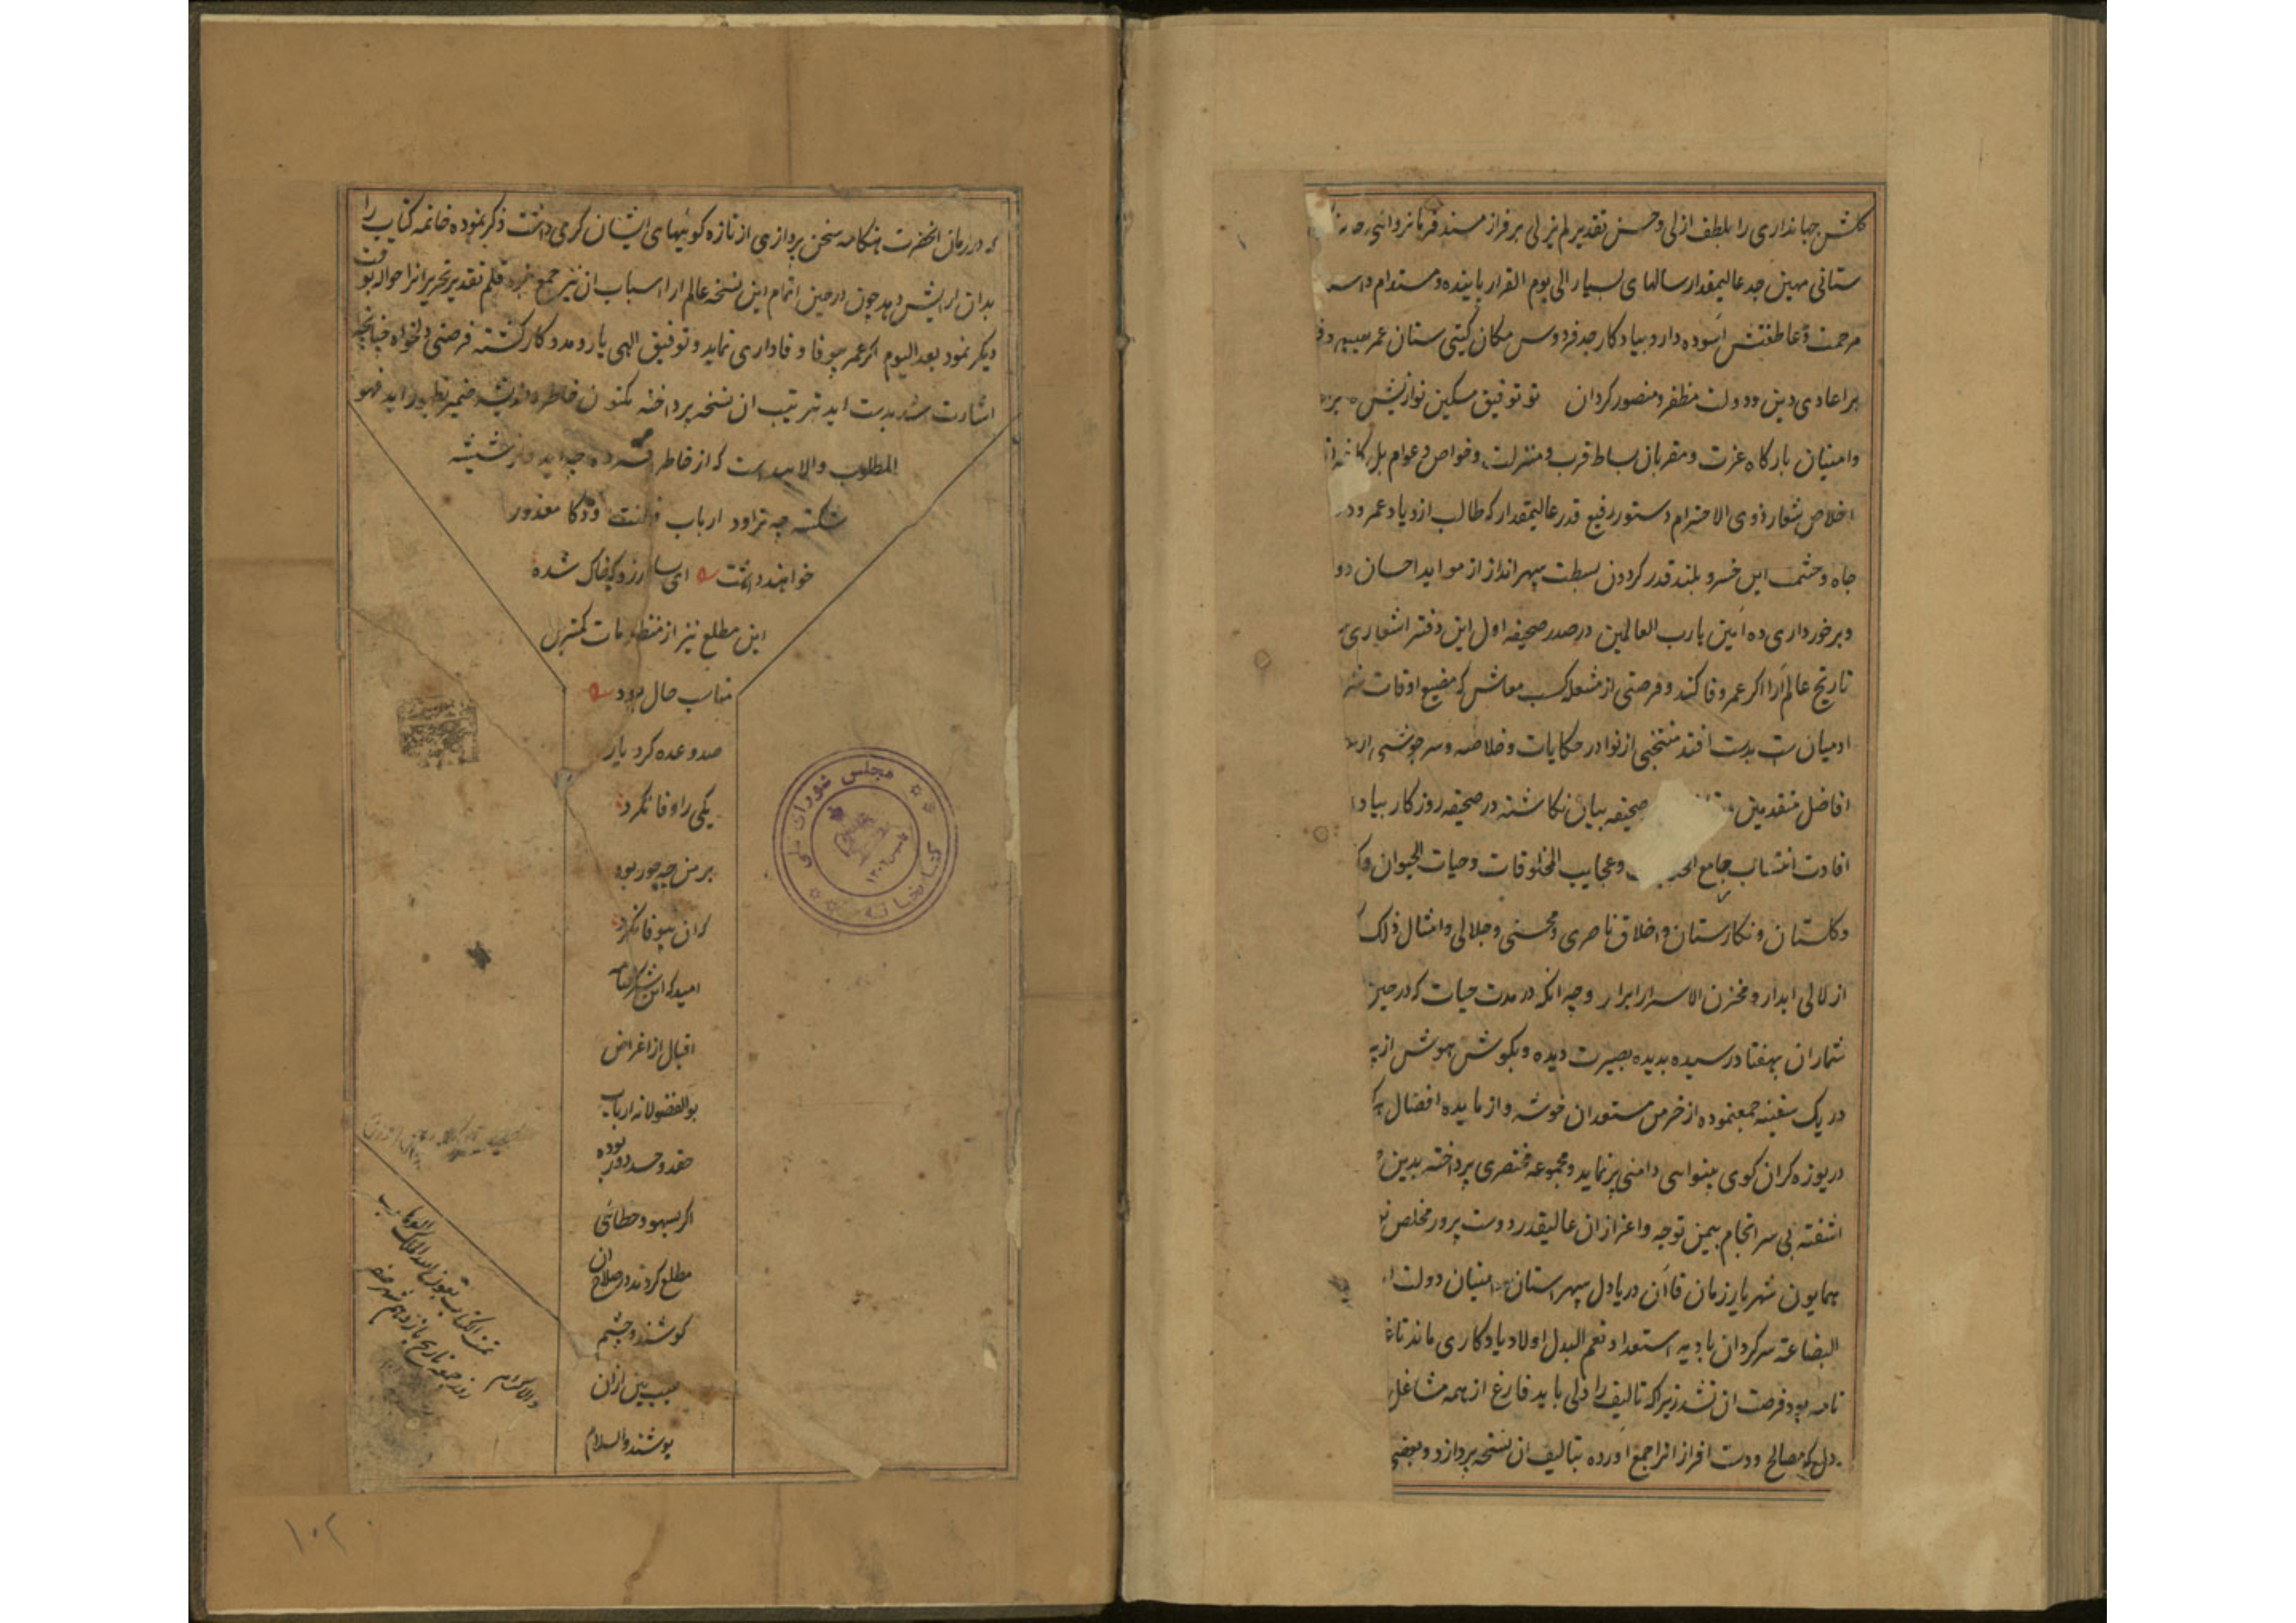 کلشن جهانداری را بلطف ازلی و حسن تقدیر لم یزلی بر فراز مسند فرمانروائی
ستانی مهین جد عالیمقدار سالهای بسیار الی یوم القرار پاینده و مستدام
مرحمت و عاطفتش آسوده دارد بیادکار جد فردوس مکان کیتی ستان عمر
بر اعادی دین و دولت مظفر و منصور کردان تو توفیق مسکین نوازیش ده
و امنیان بارکاه عزت و مقربان بساط قرب و منزلت و خواص و عوام بل
اخلاص شعار ذوی الاحترام دستور رفیع قدر عالیمقدار که طالب ازدیاد عمر و
جاه و حشمت این خسرو بلند قدر کردون بسطت سپهر انداز از مواید احسان
و برخورداری ده آمین یارب العالمین در صدر صحیفه اول این دفتر اشعاری
تاریخ عالم آرا اکر عمر وفا کند و فرصتی از مشغله کسب معاش که مضیع اوقات
ادمیان ست بدست افتد منتخبی از نوادر حکایات و خلاصه و سرجوشی از
افاضل متقدمین صحیفه بیان نکاشته در صحیفه روزکار بیاد
افادت انتساب جامع و عجایب المخلوقات و حیات الحیوان و
و کلستان و نکارستان و اخلاق ناصری و محسنی و جلالی و امثال ذلک
از لالی ابدار و مخزن الاسرار ابرار و چه انکه در مدت حیات که در حیز
شماران بهفتاد رسیده بدیده بصیرت دیده و بکوش هوش از
در یک سفینه جمعنموده از خرمن مستعدان خوشه و از مایده افضال
دریوزه کران کوی بینوائی دامنی پر نماید و مجموعه مختصری پرداخته بدین
اشفته بی سرانجام بیمن توجه و اعزاز ان عالیقدر دوست پرور مخلص
همایون شهریار زمان قاآن دریادل سپهر استان امنیان دولت
البضاعة سرکردان بادیه استعداد نعم البدل اولاد یادکاری ماند تا
نامه بود فرصت ان نشد زیرا که تالیف را دلی باید فارغ از همه مشاغل
دل که مصالح و دست افزار انرا جمع اورده بتالیف ان نسخه پردازد و بعضی
که در زمان انحضرت هنکامه سخن پردازی از تازه کوئیهای ایشان کرمی داشت ذکر نموده خاتمه کتاب را
بدان ارایش دهد چون در حین اتمام این نسخه عالم ارا اسباب ان نیز جمع نبود قلم تقدیر تحریر انرا حواله بوقت
دیکر نمود بعد الیوم اکر عمر بیوفا وفاداری نماید و توفیق الهی یار و مددکار کشته فرصتی دلخواه چنانچه
اشارت شد بدست اید ترتیب ان نسخه پرداخته مکنون خاطر و اندیشه ضمیر بظهور اید فهو
المطلوب والا پیداست که از خاطر افسرده چه اید و از شیشه
شکسته چه تراود ارباب فطنت و ذکا معذور
خواهند داشت ای بسا ارزو که خاک شده
این مطلع نیز از منظومات کمترین
مناسب حال بود
صد وعده کرد یار
یکی را وفا نکرد
بر من چه جور بود
که ان بیوفا نکرد
امید که این شکرفنامه
اقبال از اغراض
بوالفضولانه ارباب
حقد و حسد دور بوده
اکر بسهو و خطائی
مطلع کردند در صلاح ان
کوشند و چشم
عیب بین از ان
پوشند والسلام
والاکرام
تمت الکتاب بعون الله الملک الوهاب
روز جمعه تاریخ یازدهم شهر صفر
کتابخانه مجلس شورای ملی
۱۰۲